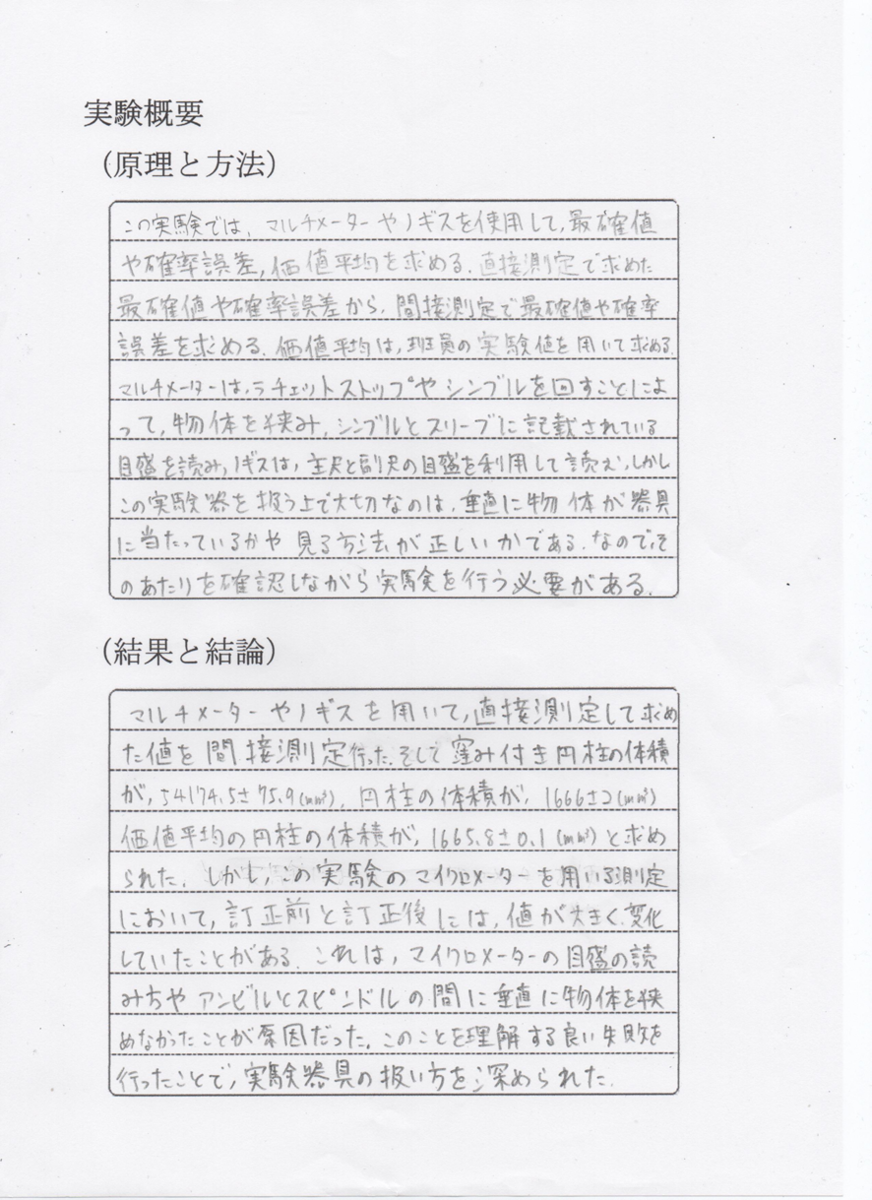 実験概要
(原理と方法)
この実験では、マルチメーターやノギスを使用して、最確値
や確率誤差、価値平均を求める。直接測定で求めた
最確値や確率誤差から、間接測定で最確値や確率
誤差を求める。価値平均は、班員の実験値を用いて求める。
マルチメーターは、ラチェットストップやシンブルを回すことによ
って、物体を挟み、シンブルとスリーブに記載されている
目盛を読み、ノギスは、主尺と副尺の目盛を利用して読む。しかし
この実験器を扱う上で大切なのは、垂直に物体が器具
に当たっているかや見る方法が正しいかである。なので、そ
のあたりを確認しながら実験を行う必要がある。
(結果と結論)
マルチメーターやノギスを用いて、直接測定して求め
た値を間接測定行った。そして窪み付き円柱の体積
が、54174.5±75.9(mm³)、円柱の体積が、1666±2(mm³)
価値平均の円柱の体積が、1665.8±0.1(mm³)と求め
られた。しかし、この実験のマイクロメーターを用いる測定
において、訂正前と訂正後には、値が大きく変化
していたことがある。これは、マイクロメーターの目盛の読
みちやアンビルとスピンドルの間に垂直に物体を挟
めなかったことが原因だった。このことを理解する良い失敗を
行ったことで、実験器具の扱い方を深められた。